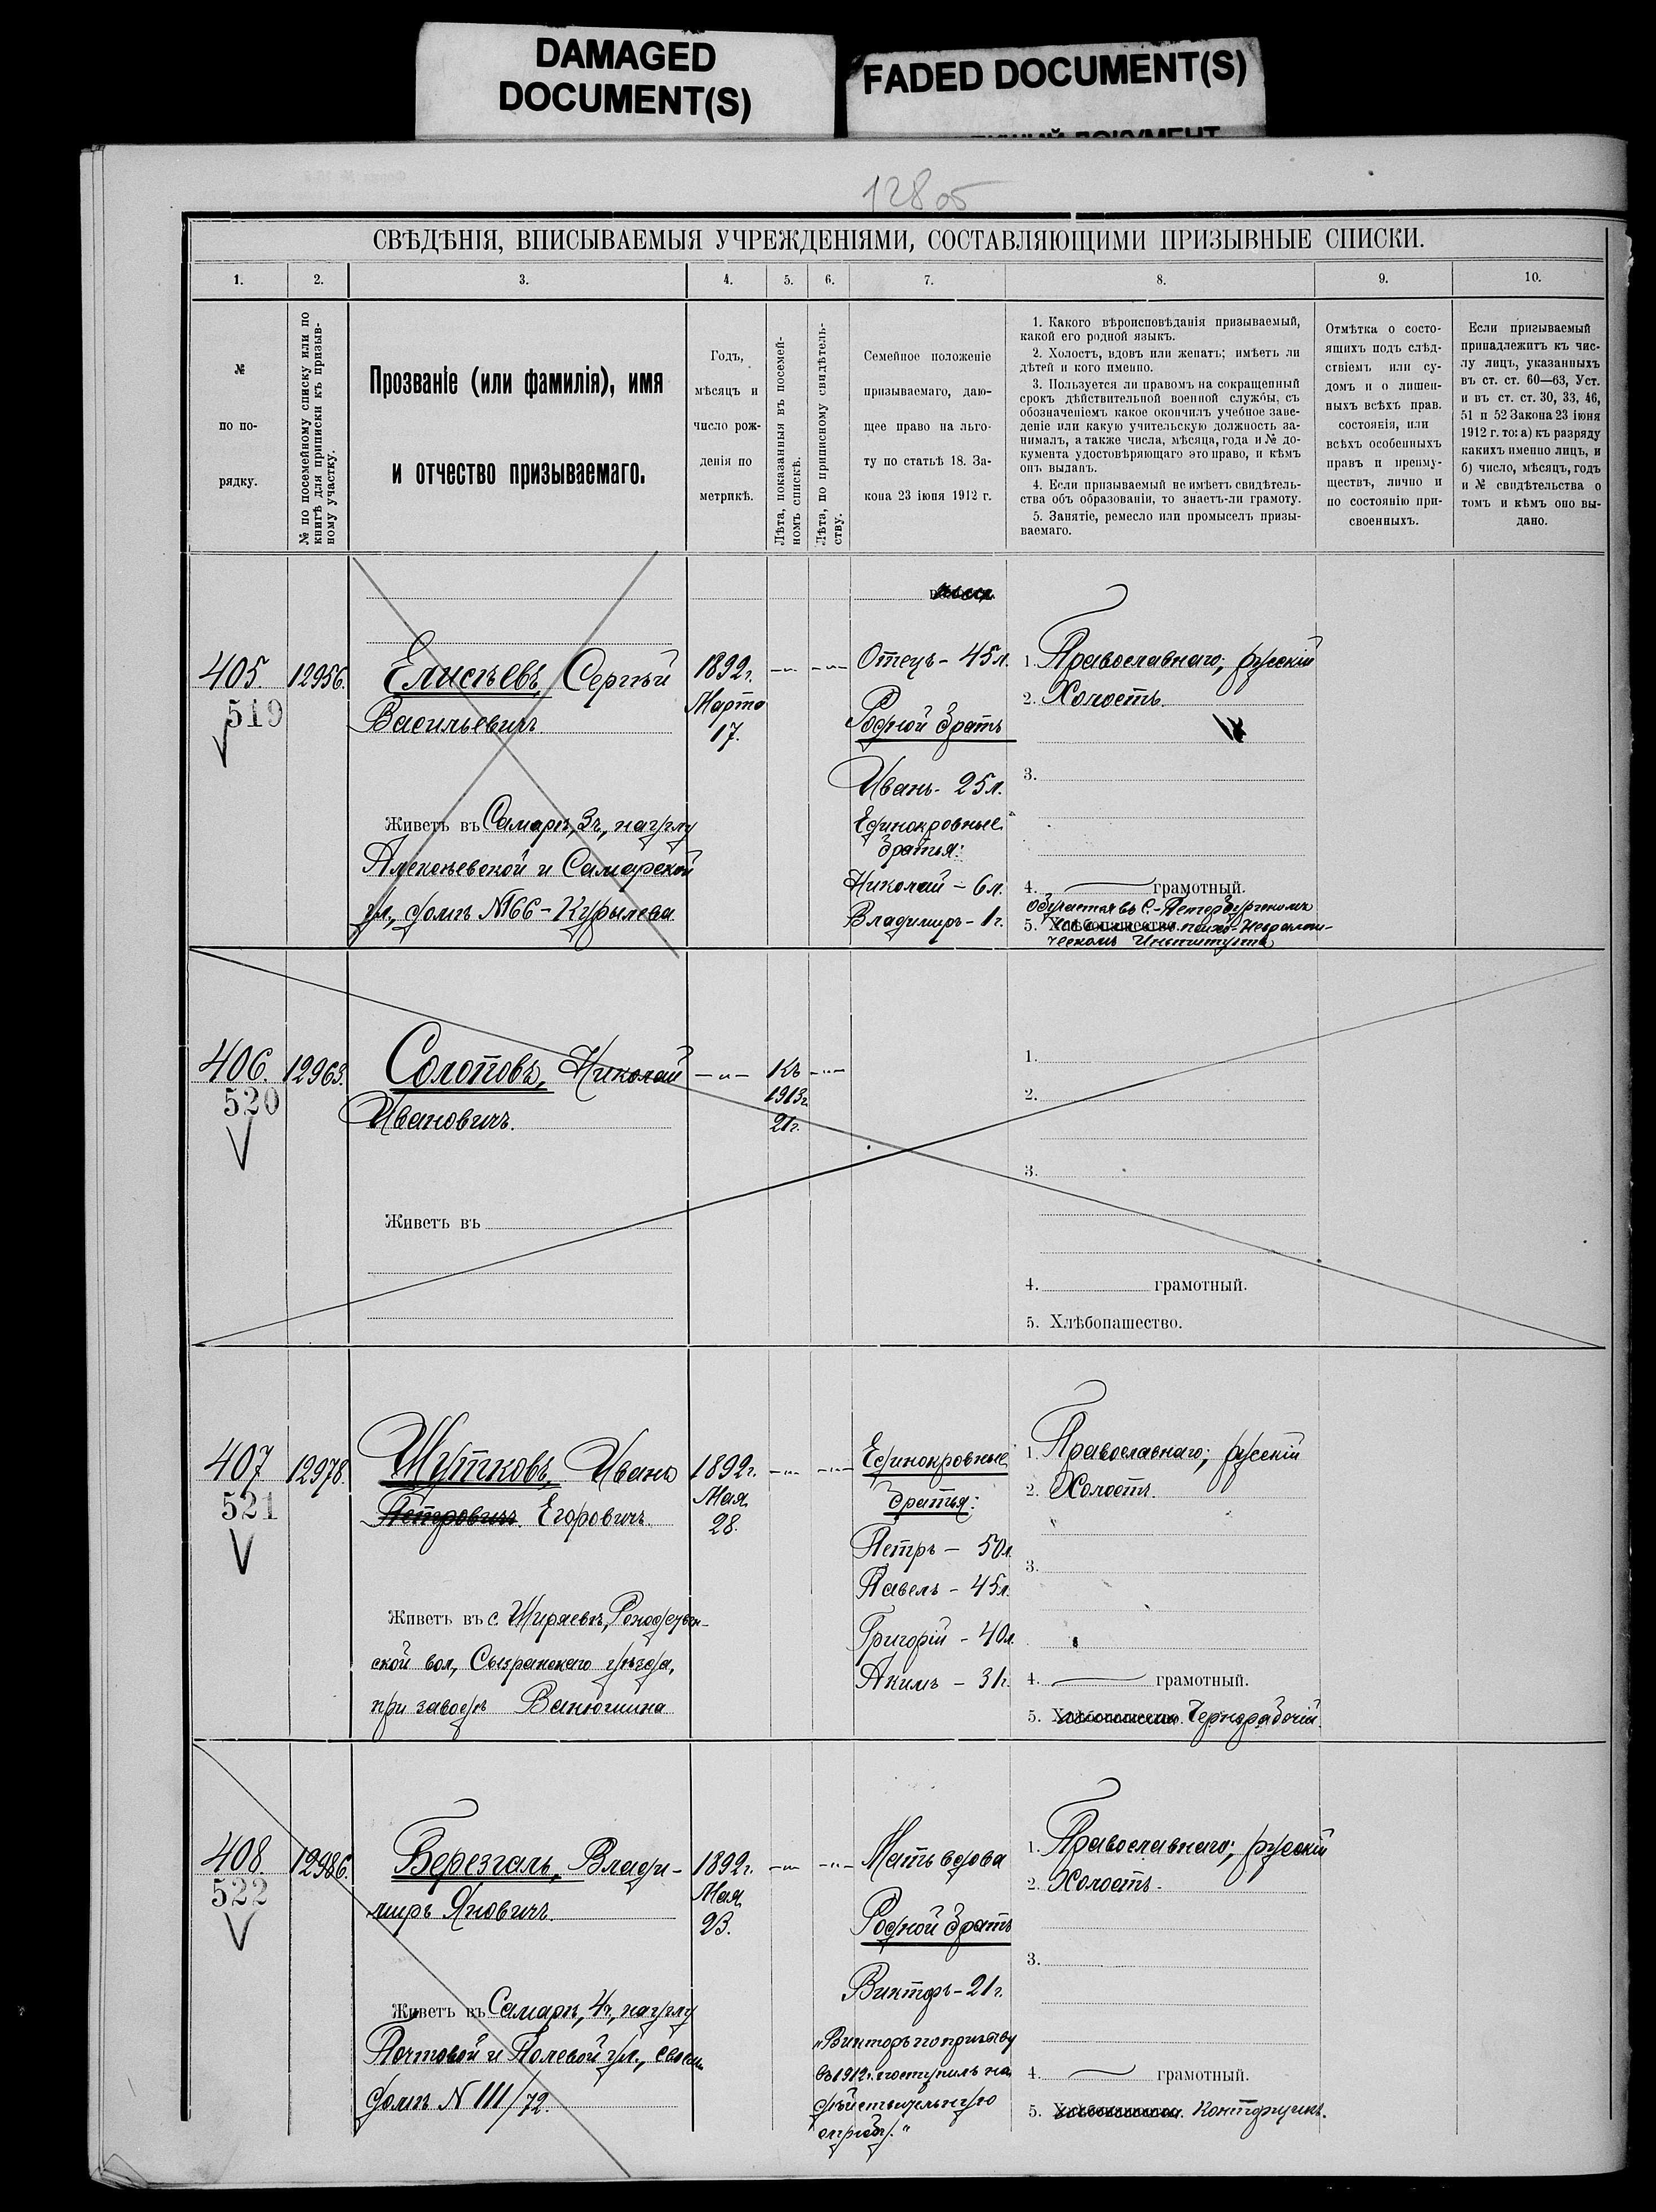 DAMAGED
DOCUMENT(S)
FADED DOCUMENT(S)
128 05
СВѢДѢНІЯ, ВПИСЫВАЕМЫЯ УЧРЕЖДЕНІЯМИ, СОСТАВЛЯЮЩИМИ ПРИЗЫВНЫЕ СПИСКИ.
1. 2. 3. 4. 5. 6. 7. 8. 9. 10.
№
по по-
рядку.
№ по посемейному списку или по
книгѣ для приписки къ призыв-
ному участку.
Прозваніе (или фамилія), имя
и отчество призываемаго.
Годъ,
мѣсяцъ и
число рож-
денія по
метрикѣ.
Лѣта, показанныя въ посемей-
номъ спискѣ.
Лѣта, по приписному свидѣтель-
ству.
Семейное положеніе
призываемаго, даю-
щее право на льго-
ту по статьѣ 18. За-
кона 23 іюня 1912 г.
1. Какого вѣроисповѣданія призываемый,
какой его родной языкъ.
2. Холостъ, вдовъ или женатъ; имѣетъ ли
дѣтей и кого именно.
3. Пользуется ли правомъ на сокращенный
срокъ дѣйствительной военной службы, съ
обозначеніемъ какое окончилъ учебное заве-
деніе или какую учительскую должность за-
нималъ, а также числа, мѣсяца, года и № до-
кумента удостовѣряющаго это право, и кѣмъ
онъ выданъ.
4. Если призываемый не имѣетъ свидѣтель-
ства объ образованіи, то знаетъ-ли грамоту.
5. Занятіе, ремесло или промыселъ призы-
ваемаго.
Отмѣтка о состо-
ящихъ подъ слѣд-
ствіемъ или су-
домъ и о лишен-
ныхъ всѣхъ прав.
состоянія, или
всѣхъ особенныхъ
правъ и преиму-
ществъ, лично и
по состоянію при-
своенныхъ.
Если призываемый
принадлежитъ къ чис-
лу лицъ, указанныхъ
въ ст. ст. 60—63, Уст.
и въ ст. ст. 30, 33, 46,
51 и 52 Закона 23 іюня
1912 г. то: а) къ разряду
какихъ именно лицъ, и
б) число, мѣсяцъ, годъ
и № свидѣтельства о
томъ и кѣмъ оно вы-
дано.
405.
519
12956.
Елисѣевъ, Сергѣй
Васильевичъ
Живетъ въ Самарѣ, 3ч., на углу
Алексѣевской и Самарской
ул., домъ №166 - Курылева
1892г.
Марта
17.
—"— —"—
Отецъ - 45л.
Родной братъ
Иванъ - 25л.
Единокровные
братья:
Николай - 6л.
Владимиръ - 1г.
1. Православнаго; русскій
2. Холостъ.
3.
4. грамотный.
Обучается въ С.-Петербургскомъ
5. Хлѣбопашество. психо-Невроло-
ческомъ Институтѣ
406.
520
12963.
Солоповъ, Николай
Ивановичъ.
Живетъ въ
—"—
Къ
1913г.
21г.
—"—
1.
2.
3.
4. грамотный.
5. Хлѣбопашество.
407
521
12978.
Шутковъ, Иванъ
Петровичъ. Егоровичъ.
Живетъ въ с. Ширяевѣ, Рождествен-
ской вол., Сызранскаго уѣзда,
при заводѣ Ванюшина
1892г.
Мая
28.
—"— —"—
Единокровные
братья:
Петръ - 50л.
Павелъ - 45л.
Григорій - 40л.
Акимъ - 31г.
1. Православнаго; русскій
2. Холостъ.
3.
4. грамотный.
5. Хлѣбопашество. Чернорабочій.
408
522
12986.
Березгаль, Влади-
миръ Яновичъ.
Живетъ въ Самарѣ, 4ч., на углу
Почтовой и Полевой ул., своемъ
домѣ N 111/72.
1892г.
Мая
23.
—"— —"—
Мать вдова
Родной братъ
Викторъ - 21г.
„Викторъ по призыву
въ 1912г. поступилъ на
дѣйствительную
службу."
1. Православнаго; русскій
2. Холостъ.
3.
4. грамотный.
5. Хлѣбопашество. Конторщикъ.